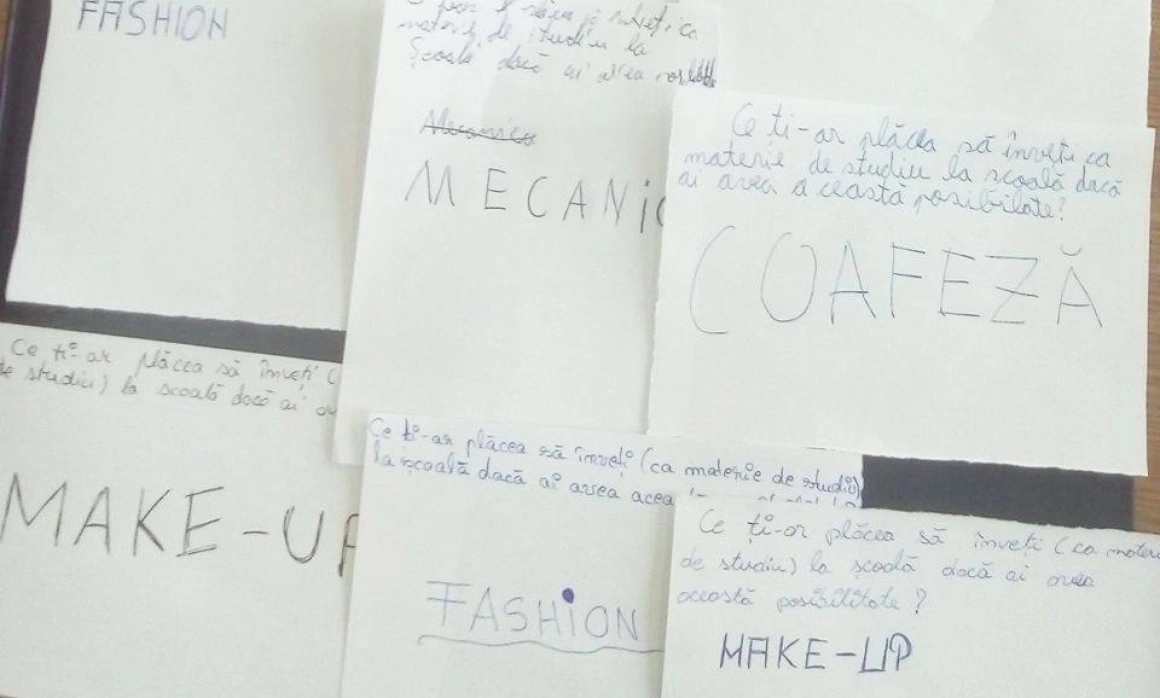 FASHION
ca
materie de studiu la
școală dacă ai avea
Mecanica
MECANIC
Ce ti-ar plăcea să înveți ca
materie de studiu la școală dacă
ai avea această posibilate?
COAFEZĂ
Ce ti-ar plăcea să înveți (
de studiu) la școală dacă ai av
MAKE-UP
Ce ți-ar plăcea să înveți (ca materie de studiu)
la școală dacă ai avea acea
FASHION
Ce ți-ar plăcea să înveți (ca materie
de studiu) la școală dacă ai avea
această posibilitate?
MAKE-UP